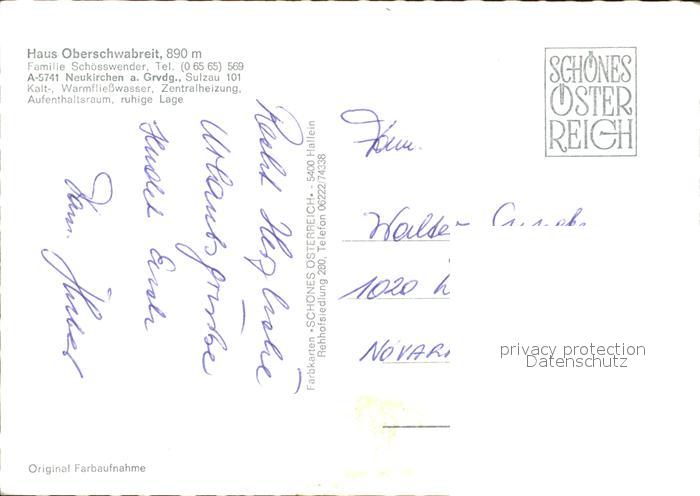 Haus Oberschwabreit, 890 m
Familie Schösswender, Tel. (0 65 65) 569
A-5741 Neukirchen a. Grvdg., Sulzau 101
Kalt-, Warmfließwasser, Zentralheizung,
Aufenthaltsraum, ruhige Lage
SCHÖNES
ÖSTER
REICH
Recht Herzliche
Urlaubsgrüsse
sendet Euch
Fam. Huber
Farbkarten »SCHÖNES ÖSTERREICH« - 5400 Hallein
Rehhofsiedlung 280, Telefon 06222/74338
Fam.
Walter
1020
NOVAR
privacy protection
Datenschutz
Original Farbaufnahme